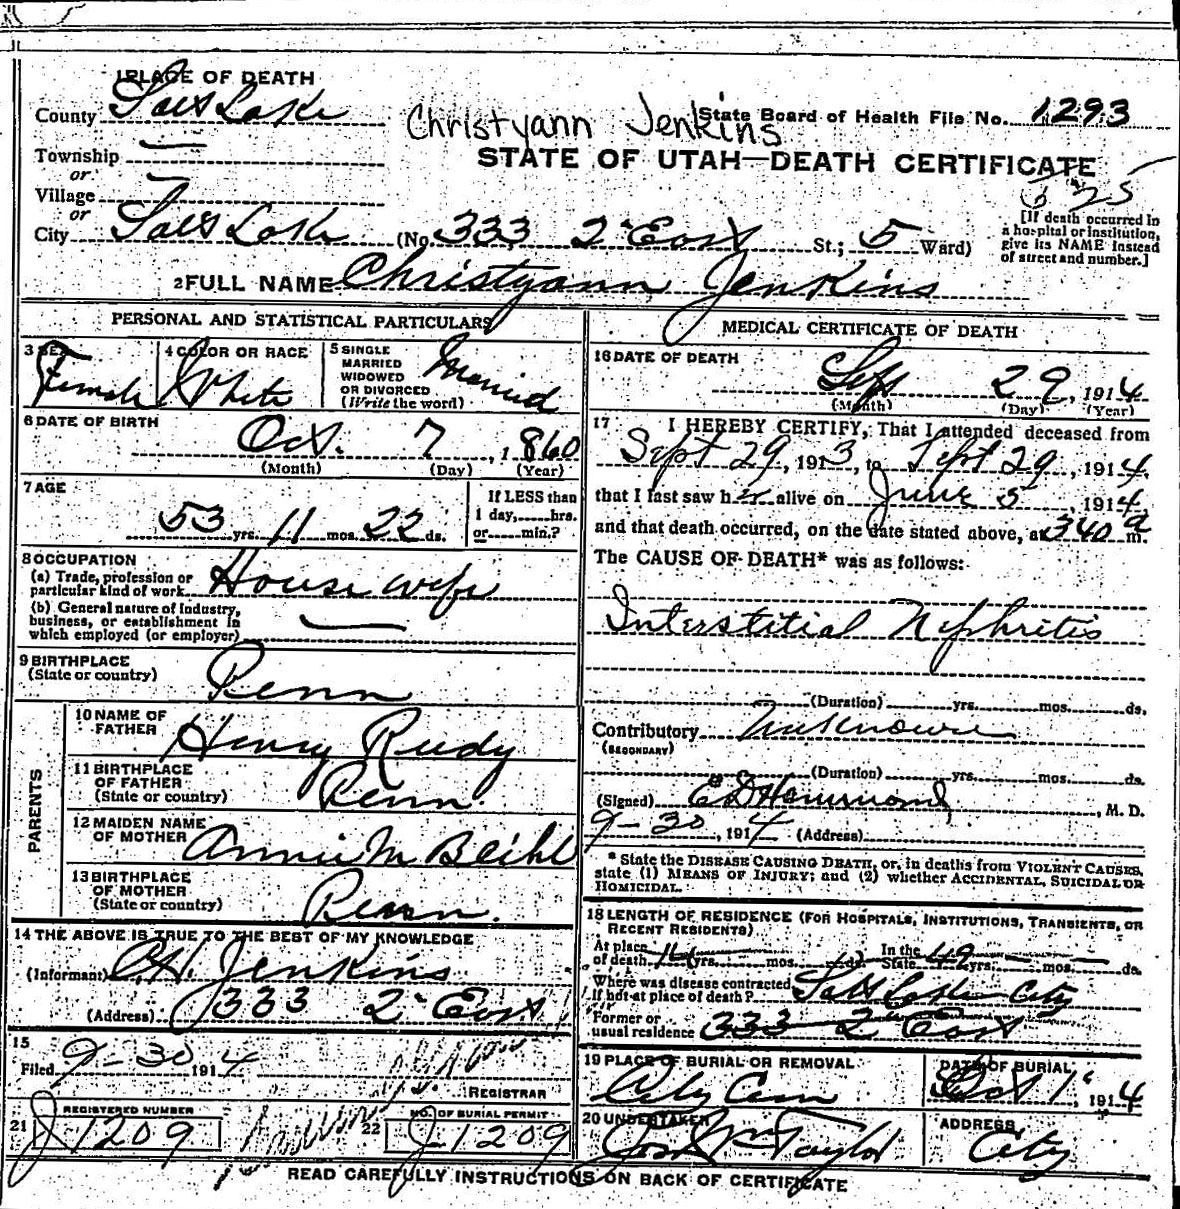 1 PLACE OF DEATH
County Salt Lake
Christyann Jenkins
State Board of Health File No. 1293
Township —
or
STATE OF UTAH—DEATH CERTIFICATE
Village —
or
City Salt Lake (No. 333 2" East St.; 5 Ward)
[If death occurred in a hospital or institution, give its NAME instead of street and number.]
2 FULL NAME Christyann Jenkins
PERSONAL AND STATISTICAL PARTICULARS
3 SEX Female
4 COLOR OR RACE White
5 SINGLE MARRIED WIDOWED OR DIVORCED (Write the word) Married
6 DATE OF BIRTH
Oct. 7, 1860
(Month) (Day) (Year)
7 AGE
53 yrs. 11 mos. 22 ds.
If LESS than 1 day, hrs. or min.?
8 OCCUPATION
(a) Trade, profession or particular kind of work House wife
(b) General nature of industry, business, or establishment in which employed (or employer) —
9 BIRTHPLACE
(State or country) Penn
PARENTS
10 NAME OF FATHER Henry Rudy
11 BIRTHPLACE OF FATHER (State or country) Penn.
12 MAIDEN NAME OF MOTHER Annie M Beihl
13 BIRTHPLACE OF MOTHER (State or country) Penn.
14 THE ABOVE IS TRUE TO THE BEST OF MY KNOWLEDGE
(Informant) Jenkins
(Address) 333 2" East
15
Filed 9-30 1914
REGISTRAR
21 REGISTERED NUMBER J 1209
22 NO. OF BURIAL PERMIT J-1209
MEDICAL CERTIFICATE OF DEATH
16 DATE OF DEATH
Sept 29, 1914
(Month) (Day) (Year)
17 I HEREBY CERTIFY, That I attended deceased from
Sept 29, 1913, to Sept 29, 1914
that I last saw her alive on June 5, 1914
and that death occurred, on the date stated above, at 340 a m.
The CAUSE OF DEATH* was as follows:
Interstitial Nephritis
(Duration) yrs. mos. ds.
Contributory Unknown
(SECONDARY)
(Duration) yrs. mos. ds.
(Signed) E D Hammond, M. D.
9-30, 1914 (Address)
* State the DISEASE CAUSING DEATH, or, in deaths from VIOLENT CAUSES, state (1) MEANS OF INJURY; and (2) whether ACCIDENTAL, SUICIDAL OR HOMICIDAL.
18 LENGTH OF RESIDENCE (FOR HOSPITALS, INSTITUTIONS, TRANSIENTS, OR RECENT RESIDENTS)
At place of death 14 yrs. mos. ds. In the State 49 yrs. — mos. — ds.
Where was disease contracted if not at place of death? Salt Lake City
Former or usual residence 333 2" East
19 PLACE OF BURIAL OR REMOVAL City Cem
DATE OF BURIAL Oct 1, 1914
20 UNDERTAKER Taylor
ADDRESS City
READ CAREFULLY INSTRUCTIONS ON BACK OF CERTIFICATE